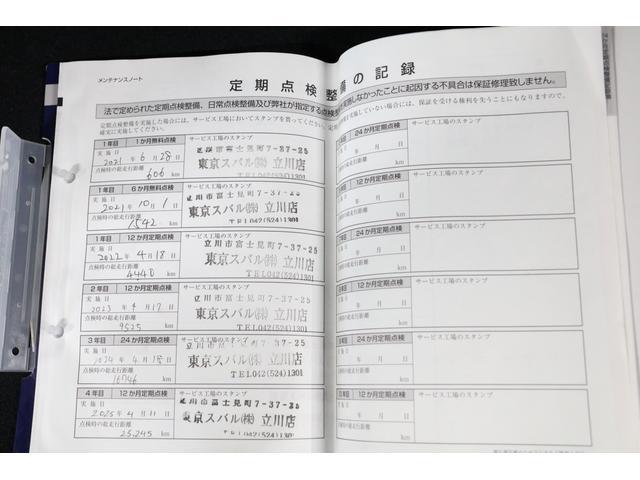 メンテナンスノート
定期点検整備の記録
法で定められた定期点検整備、日常点検整備及び弊社が指定する点検
実施しなかったことに起因する不具合は保証修理致しません。
定期点検整備を実施した場合には、サービス工場においてスタンプを貰ってください。
確実に実施してください。
実施していない場合には、保証を受ける権利を失うことにもなりますので、
1年目 1か月無料点検 サービス工場のスタンプ
実施日 2021年 6月 28日
点検時の総走行距離 606 km
立川市富士見町7-37-25
東京スバル㈱ 立川店
TEL042(524)1301
1年目 6か月無料点検 サービス工場のスタンプ
実施日 2021年 10月 1日
点検時の総走行距離 1,542 km
立川市富士見町7-37-25
東京スバル㈱ 立川店
TEL042(524)1301
1年目 12か月定期点検 サービス工場のスタンプ
実施日 2022年 4月 18日
点検時の総走行距離 4440 km
立川市富士見町7-37-25
東京スバル㈱ 立川店
TEL042(524)1301
2年目 12か月定期点検 サービス工場のスタンプ
実施日 2023年 4月 17日
点検時の総走行距離 9525 km
立川市富士見町7-37-25
東京スバル㈱ 立川店
TEL042(524)1301
3年目 24か月定期点検 サービス工場のスタンプ
実施日 2024年 4月
点検時の総走行距離 16746 km
立川市富士見町7-37-25
東京スバル㈱ 立川店
TEL042(524)1301
4年目 12か月定期点検 サービス工場のスタンプ
実施日 2025年 4月 11日
点検時の総走行距離 23,245 km
立川市富士見町7-37-25
東京スバル㈱ 立川店
TEL042(524)1301
24か月定期点検 サービス工場のスタンプ
年 月 日
総走行距離 km
12か月定期点検 サービス工場のスタンプ
年 月 日
総走行距離 km
24か月定期点検 サービス工場のスタンプ
年 月 日
総走行距離 km
12か月定期点検 サービス工場のスタンプ
年 月 日
総走行距離 km
24か月定期点検 サービス工場のスタンプ
年 月 日
総走行距離 km
12か月定期点検 サービス工場のスタンプ
年 月 日
総走行距離 km